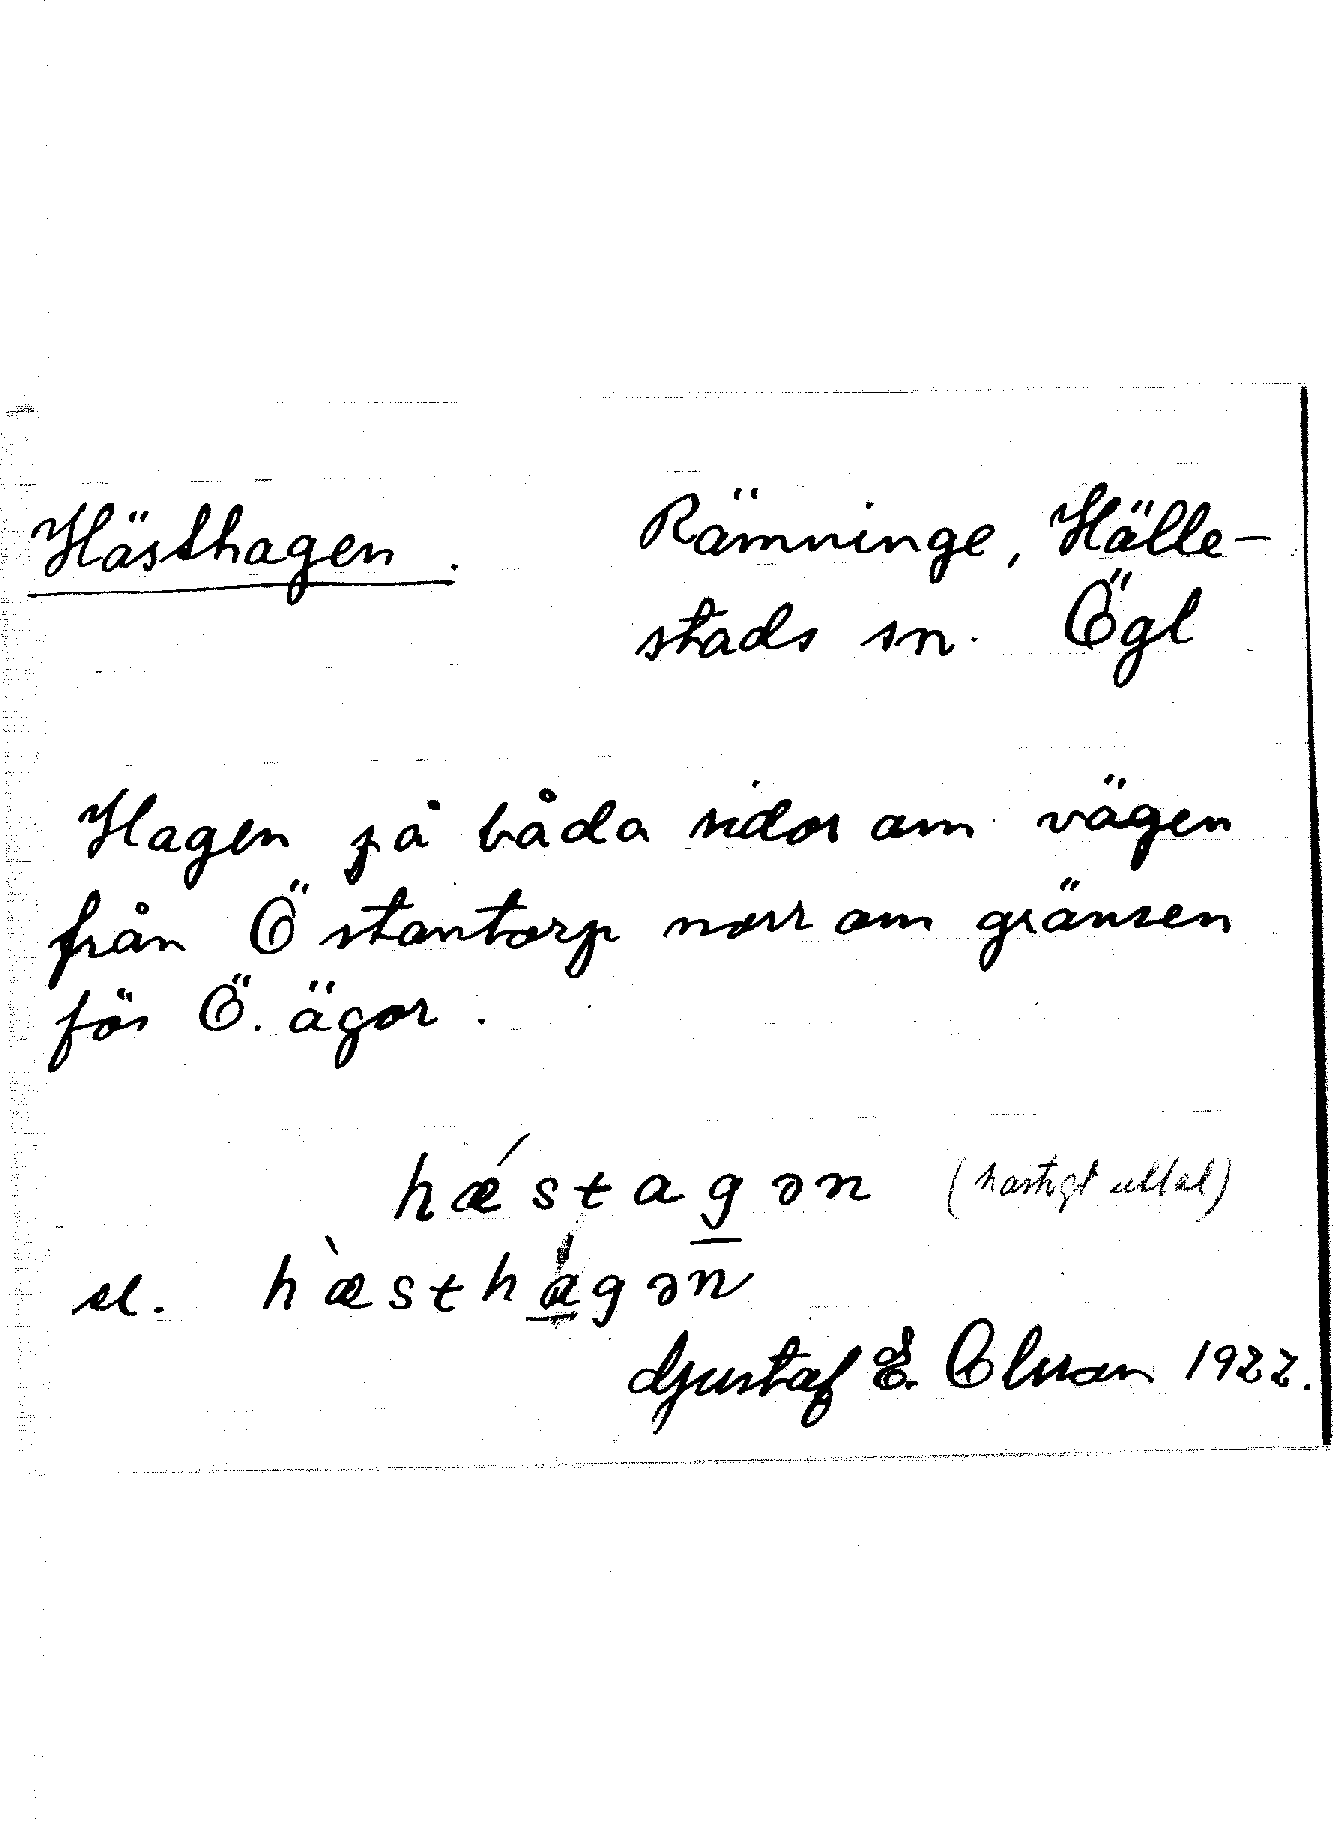 Hästhagen. Rämninge, Hälle-
stads sn. Ögl
Hagen på båda sidor om vägen
från Östantorp norr om gränsen
för Ö. ägor.
hǽstagən (hastigt uttal)
el. hæ̀sthágən
Gustaf E. Olsson 1922.